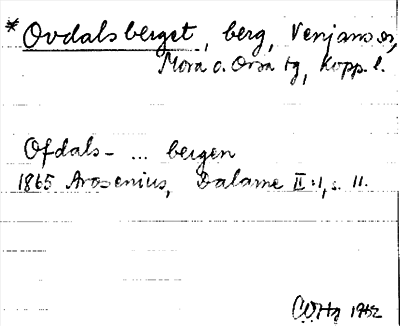 * Ovdalsberget, berg, Venjans sn,
Mora o. Orsa tg, Kopp. l.
Ofdals- ... bergen
1865 Arosenius, Dalarne II:1, s. 11.
1962